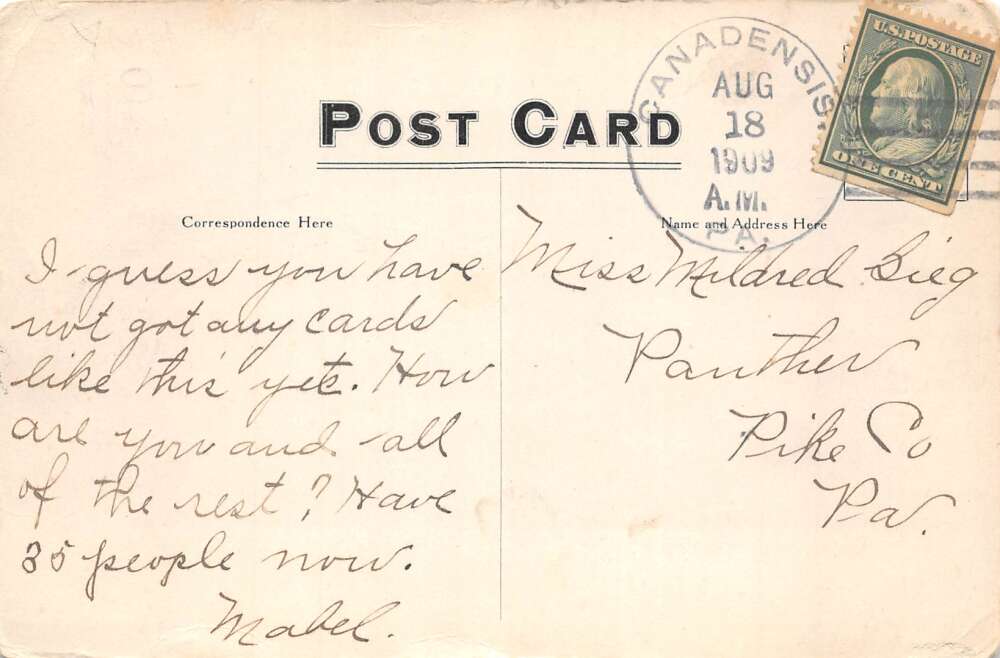 POST CARD
CANADENSIS,
AUG
18
1909
A.M.
PA.
U.S. POSTAGE
ONE CENT
Correspondence Here
Name and Address Here
I guess you have
not got any cards
like this yet. How
are you and all
of the rest? Have
35 people now.
Mabel.
Miss Mildred Sieg
Panther
Pike Co
Pa.